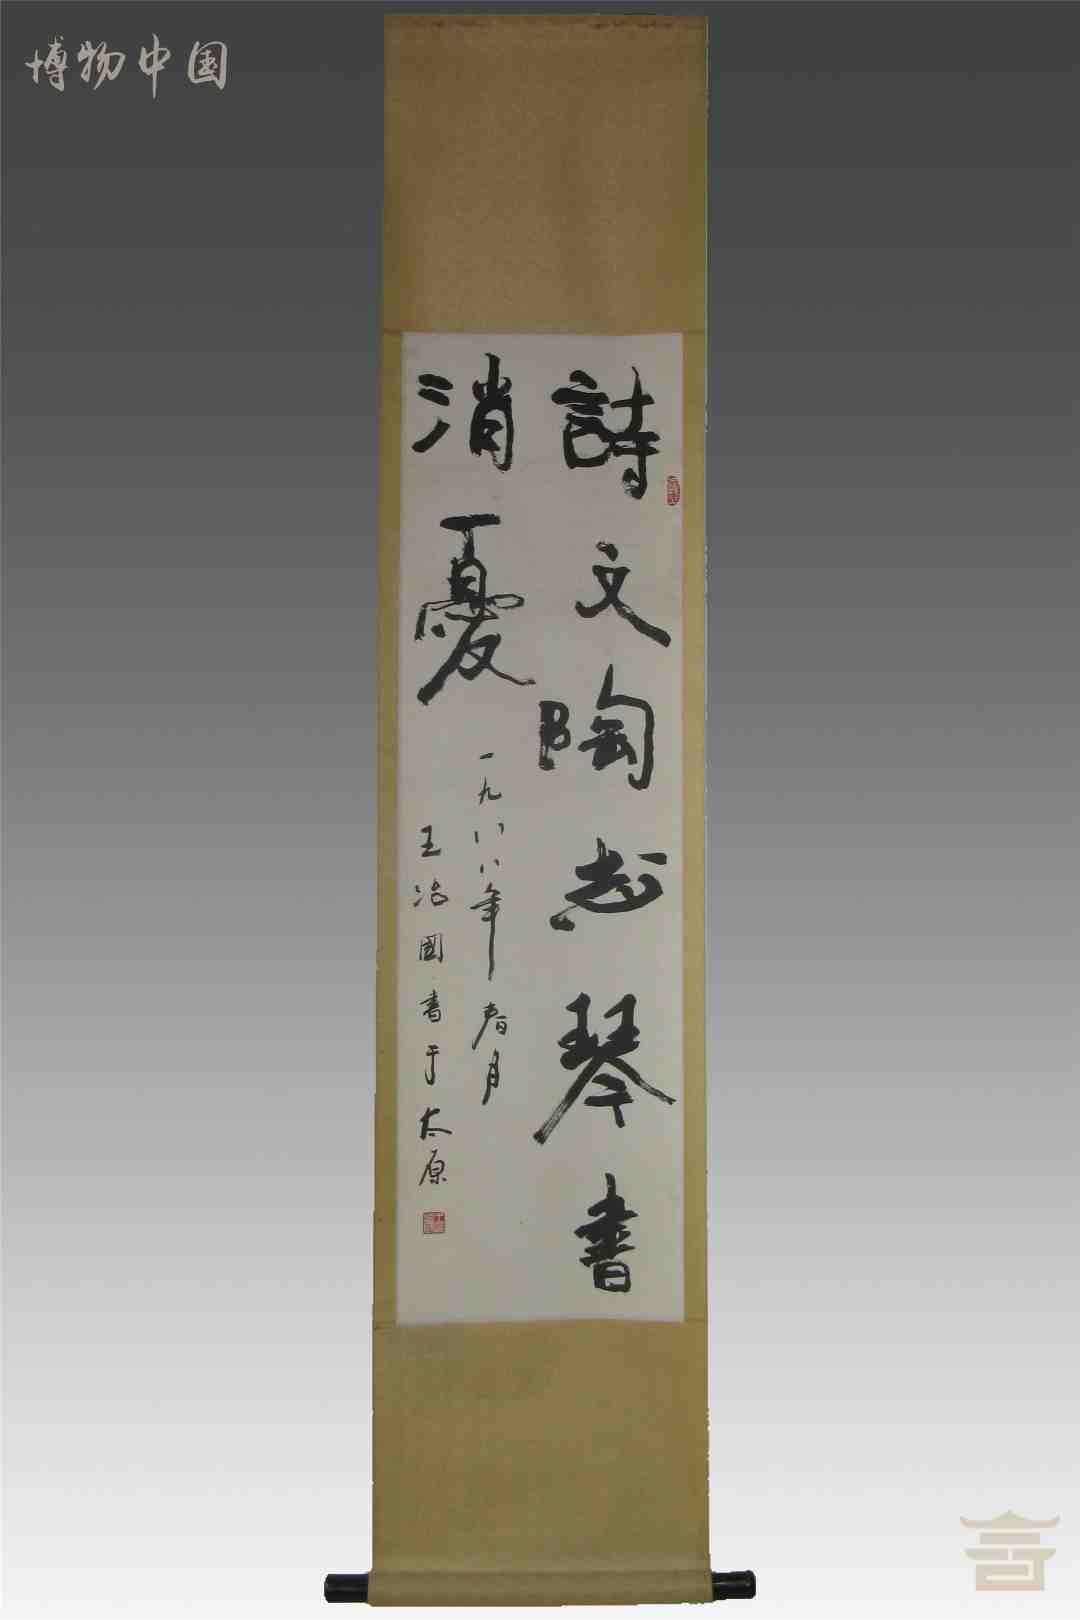 博物中国
詩文陶志琴書
消憂
一九八八年春月
王治國書于太原